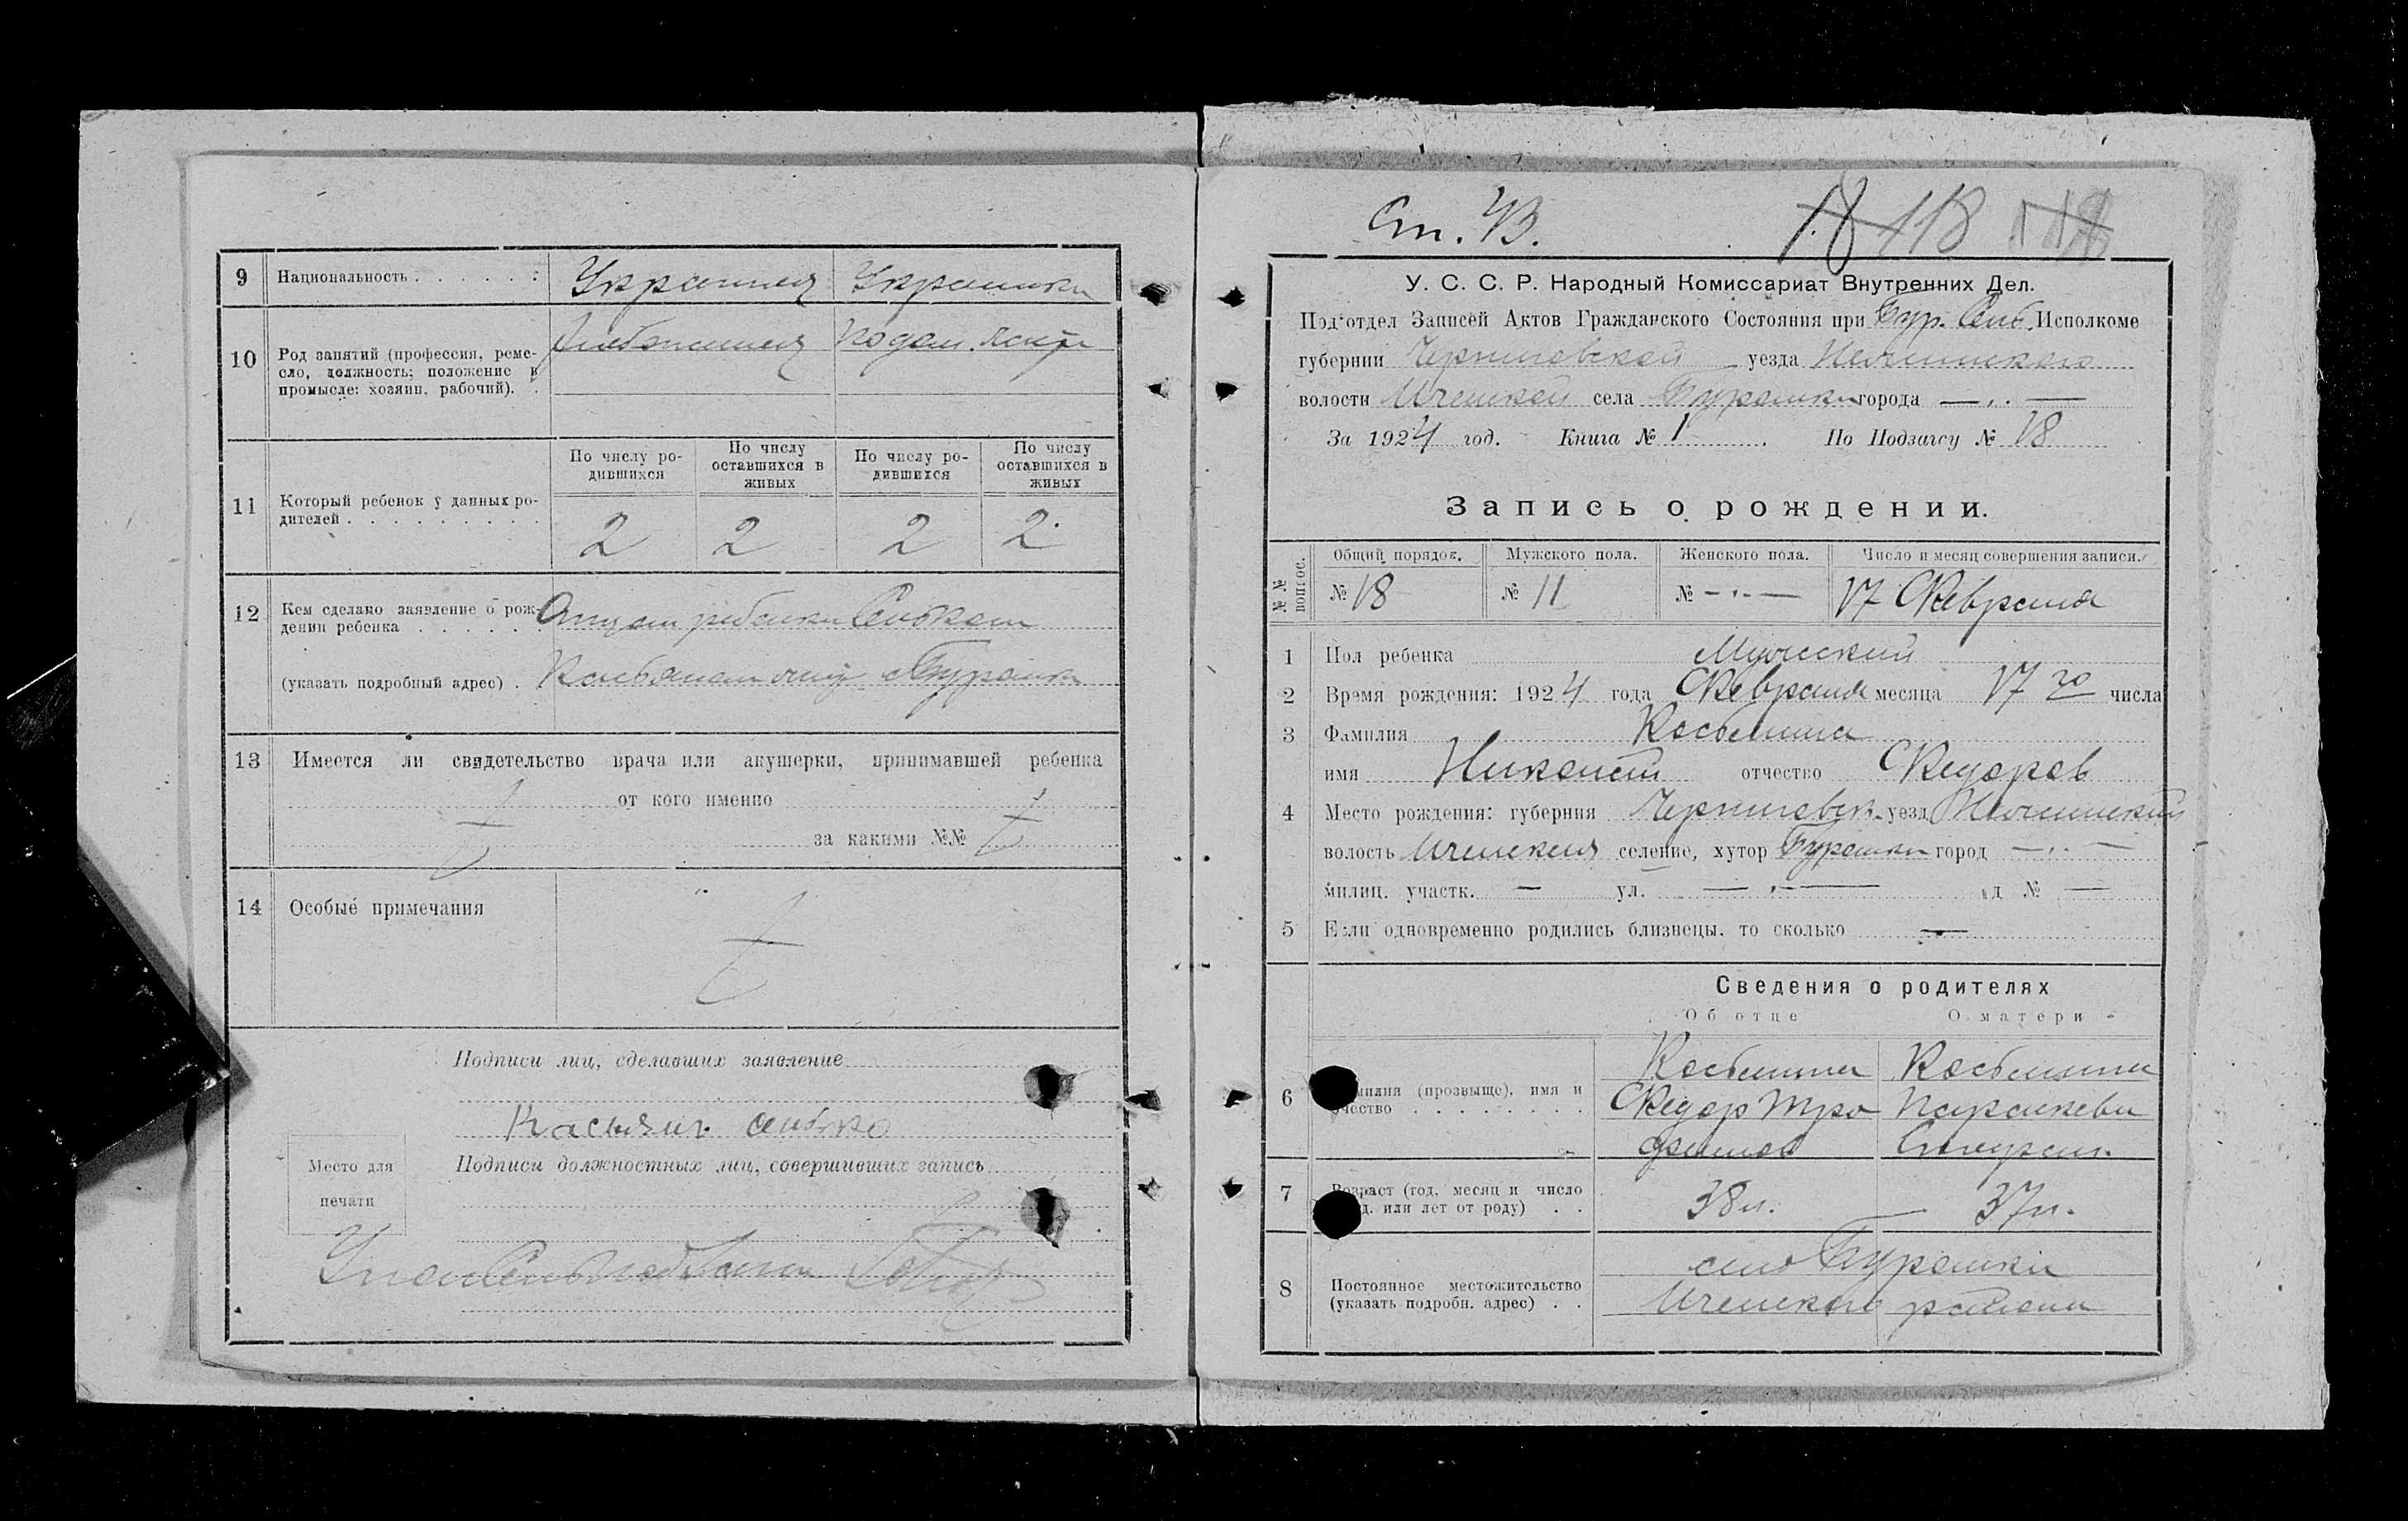 9 Национальность Украинец Украинка
10 Род занятий (профессия, реме-
сло, должность; положение в
промысле: хозяин, рабочий).
11 Который ребенок у данных ро-
дителей
По числу ро-
дившихся
По числу
оставшихся в
живых
По числу ро-
дившихся
По числу
оставшихся в
живых
2 2 2 2.
12 Кем сделано заявление о рож-
дении ребенка Отцом ребенка
(указать подробный адрес)
13 Имеется ли свидетельство врача или акушерки, принимавшей ребенка
от кого именно
за какими №№
14 Особые примечания
Подписи лиц, сделавших заявление
Подписи должностных лиц, совершивших запись
Место для
печати
118
У. С. С. Р. Народный Комиссариат Внутренних Дел.
Подотдел Записей Актов Гражданского Состояния при Бур. Сель. Исполкоме
губернии Черниговской уезда Нежинского
волости Иченской села Бурамки города — „ —
За 1924 год. Книга № 1 По Подзагсу № 18
Запись о рождении.
№№ вопрос.
Общий порядок. Мужского пола. Женского пола. Число и месяц совершения записи.
№ 18 № 11 № — „ — 17 Февраля
1 Пол ребенка Мужеский
2 Время рождения: 1924 года Февраля месяца 17 го числа
3 Фамилия
имя отчество Федоров
4 Место рождения: губерния Черниговск. уезд Нежинский
волость Иченская селение, хутор Бурамка город — „ —
милиц. участк. — ул. — „ — д № —
5 Если одновременно родились близнецы, то сколько —
Сведения о родителях
Об отце О матери
6 Фамилия (прозвыще), имя и
отчество
Федор Тро Параскева
фимов
7 Возраст (год, месяц и число
рожд. или лет от роду) 38 л. 37 л.
8 Постоянное местожительство
(указать подробн. адрес)
село Бурамка
Иченского района